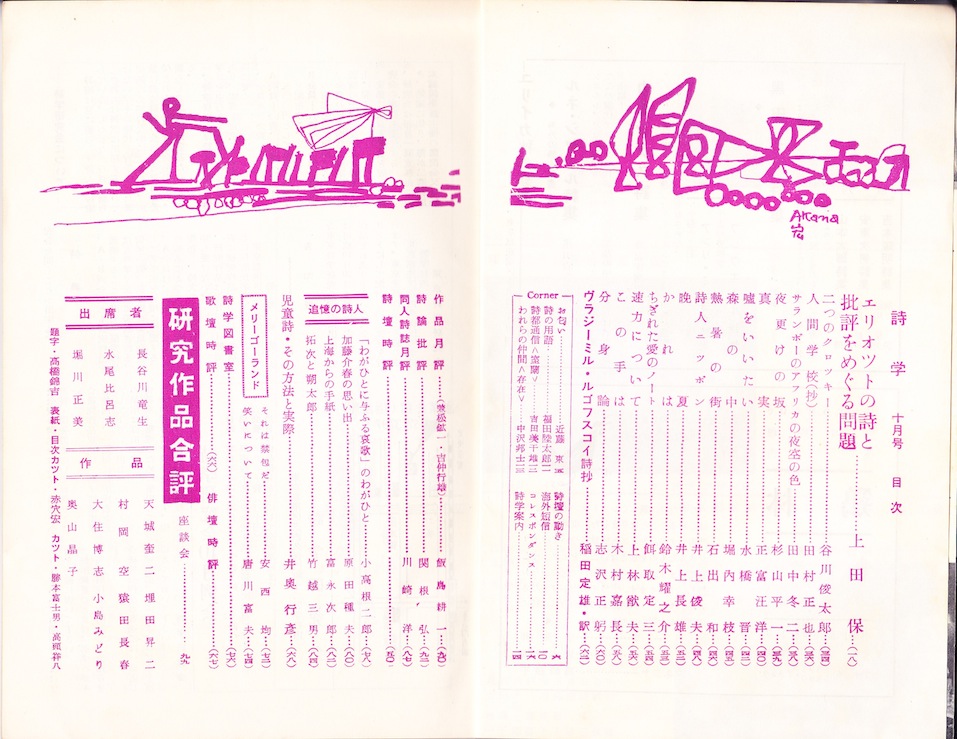 詩学 十月号 目次
エリオットの詩と
批評をめぐる問題……上田保…(一八)
二つのクロッキー……谷川俊太郎…(三四)
人間学校(抄)……田村正也…(三六)
サランボーのアフリカの夜空の色……田中冬二…(三八)
夜更けの坂……杉山平一…(三九)
真実……正富汪洋…(四〇)
嘘をいいたい……水橋晋…(四二)
森の中……堀内幸枝…(四五)
熱暑の街……石出和…(四六)
詩人ニッポン……井上俊夫…(四八)
晩夏……井上長雄
かれは……鈴木耀之介…(五三)
ちぎれた愛のノート……餌取定三…(五四)
速力について……上林猷夫…(五六)
この手は……木村嘉長…(五八)
分身論……志沢正躬…(六〇)
ヴラジーミル・ルゴフスコイ詩抄……稲田定雄・訳…(六二)
Corner
お匂い……近藤東
詩の用語……福田陸太郎
詩都通信<室蘭>……吉田美千雄
われらの仲間<存在>……中沢邦士
詩壇の動き
海外短信
コレスポンダンス
詩学案内
Akana
宏
作品月評……(黛松鉱一・吉仲行雄) 飯島耕一…(九〇)
詩論批評……関根弘…(九二)
同人詩誌月評……川崎洋…(八七)
詩壇時評……(五〇)
追憶の詩人
「わがひとに与ふる哀歌」のわがひと……小高根二郎…(七八)
加藤介春の思い出……原田種夫…(八二)
上海からの手紙……富永次郎…(八〇)
拓次と朔太郎……竹越三男…(八四)
児童詩・その方法と実際……井奥行彦…(六八)
メリーゴーランド
それは禁句だ……安西均…(七二)
笑いについて……唐川富夫…(七四)
詩学図書室……(七六)
歌壇時評……(六六) 俳壇時評……(六七)
研究作品合評 座談会……九九
出席者
長谷川竜生
水尾比呂志
堀川正美
作品
天城奎二 埋田昇二
村岡空 猿田長春
大住博志 小島みどり
奥山晶子
題字・高橋錦吉 表紙・目次カット・赤穴宏 カット・勝本富士男・高頭祥八